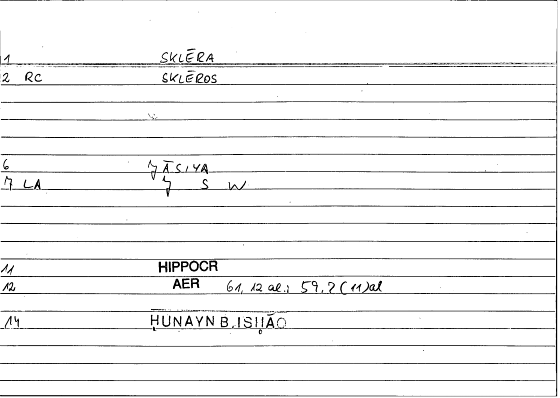 1 SKLĒRA
2 RC SKLĒROS
6 ĀSIYA
7 LA S W
11 HIPPOCR
12 AER 61, 12 al.; 59,7 (11) al
14 ḤUNAYN B. ISḤĀQ